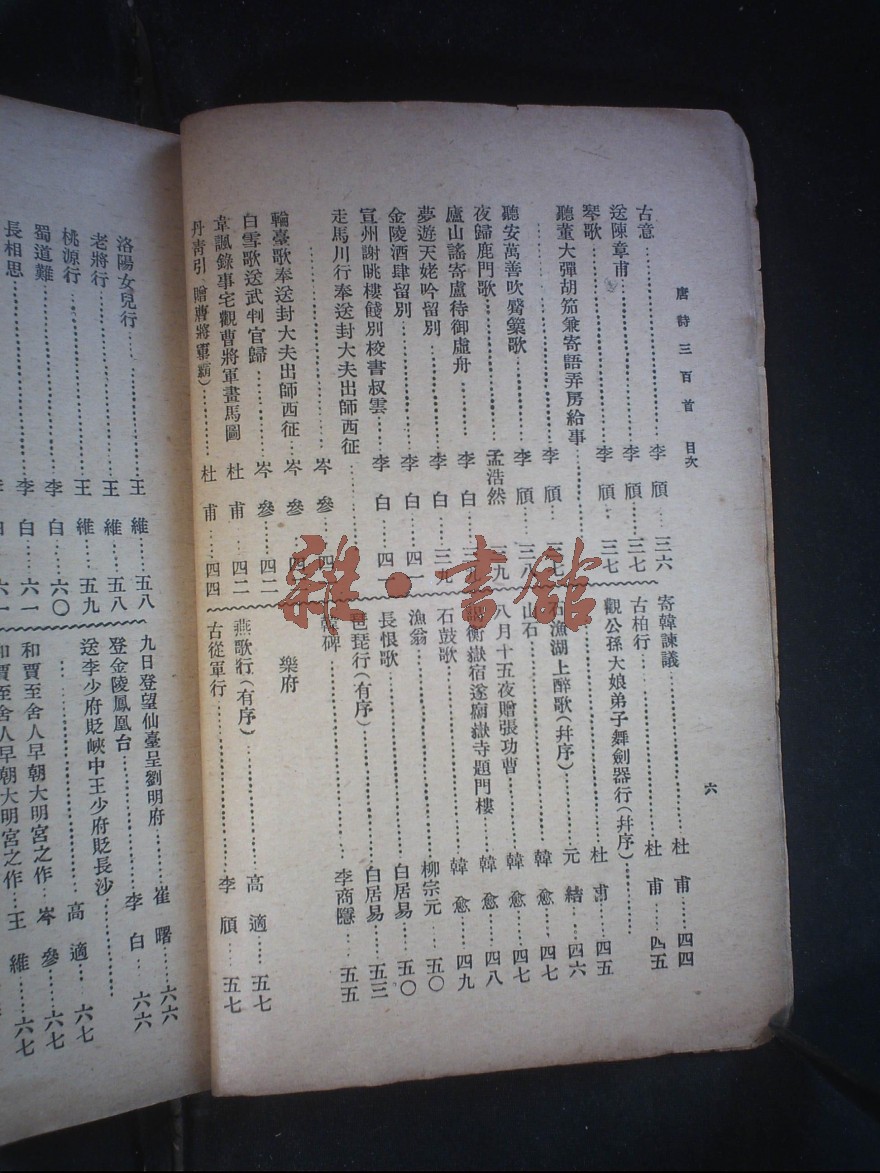 唐詩三百首 目次
六
古意……李頎……三六
送陳章甫……李頎……三七
琴歌……李頎……三七
聽董大彈胡笳兼寄語弄房給事
……李頎……三七
聽安萬善吹觱篥歌……李頎……三八
夜歸鹿門歌……孟浩然……三九
廬山謠寄盧待御虛舟……李白……三九
夢遊天姥吟留別……李白……三九
金陵酒肆留別……李白……四一
宣州謝眺樓餞別校書叔雲……李白……四一
走馬川行奉送封大夫出師西征
……岑參……四一
輪臺歌奉送封大夫出師西征……岑參……四一
白雪歌送武判官歸……岑參……四二
韋諷錄事宅觀曹將軍畫馬圖 杜甫……四二
丹青引(贈曹將軍霸)……杜甫……四四
寄韓諫議……杜甫……四四
古柏行……杜甫……四五
觀公孫大娘弟子舞劍器行(幷序)……
……杜甫……四五
石漁湖上醉歌(幷序)……元結……四六
山石……韓愈……四七
八月十五夜贈張功曹……韓愈……四七
謁衡嶽宿遂廟嶽寺題門樓……韓愈……四八
石鼓歌……韓愈……四九
漁翁……柳宗元……五〇
長恨歌……白居易……五〇
琵琶行(有序)……白居易……五三
韓碑……李商隱……五五
樂府
燕歌行(有序)……高適……五七
古從軍行……李頎……五七
洛陽女兒行……王維……五八
老將行……王維……五八
桃源行……王維……五九
蜀道難……李白……六〇
長相思……李白……六一
白……六一
九日登望仙臺呈劉明府……崔曙……六六
登金陵鳳凰台……李白……六六
送李少府貶峽中王少府貶長沙……
……高適……六七
和賈至舍人早朝大明宮之作……岑參……六七
和賈至舍人早朝大明宮之作……王維……六七
雜·書館